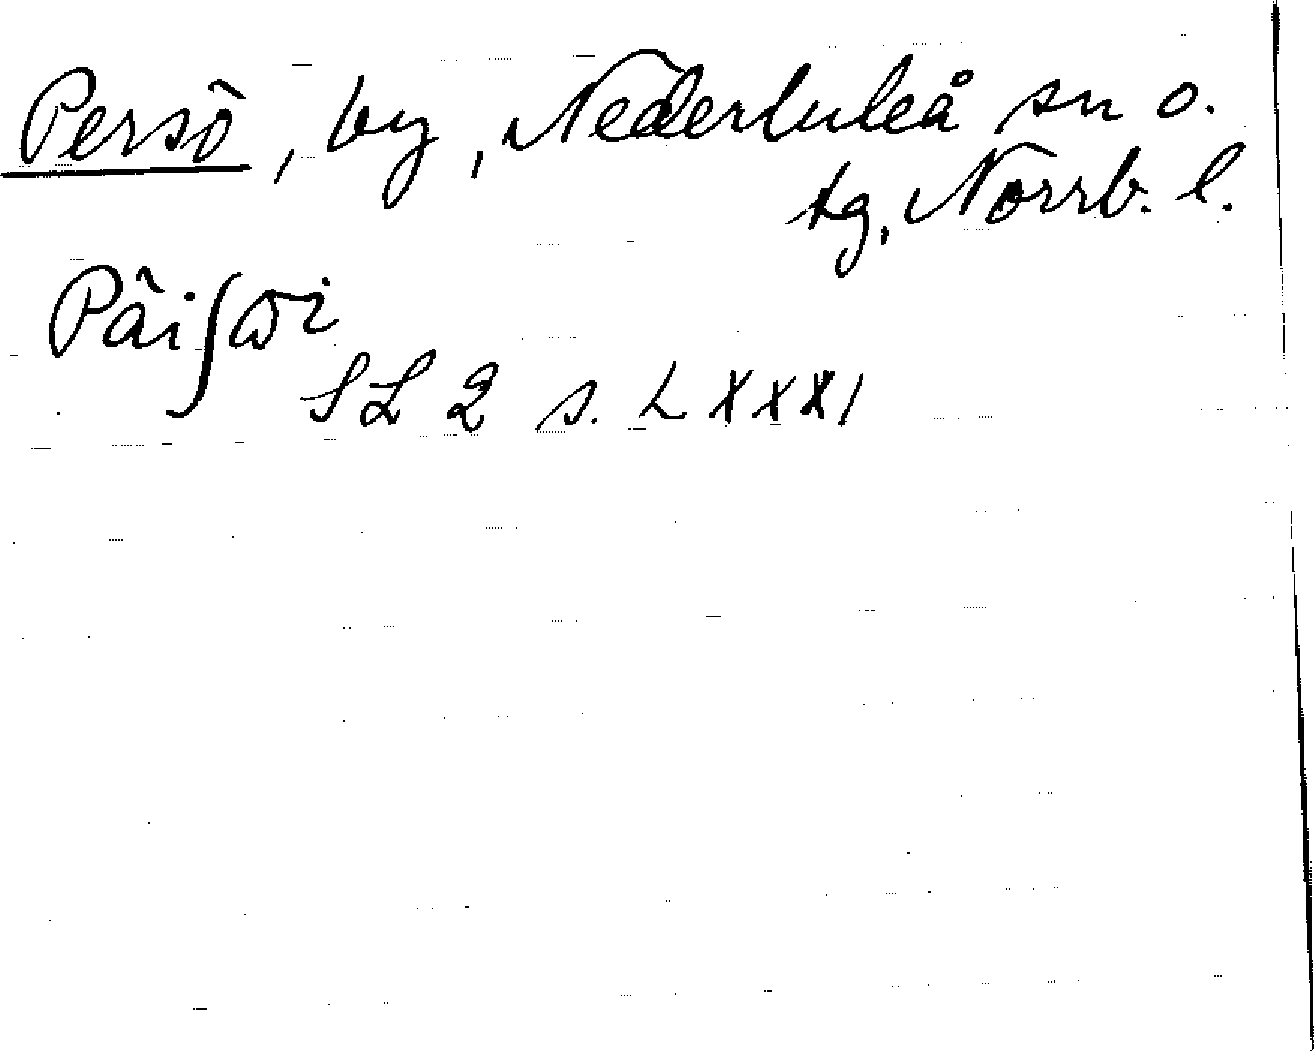 Persö, by, Nederluleå sn o.
tg, Norrb. l.
Päiſϖi
SL 2 s. LXXXI